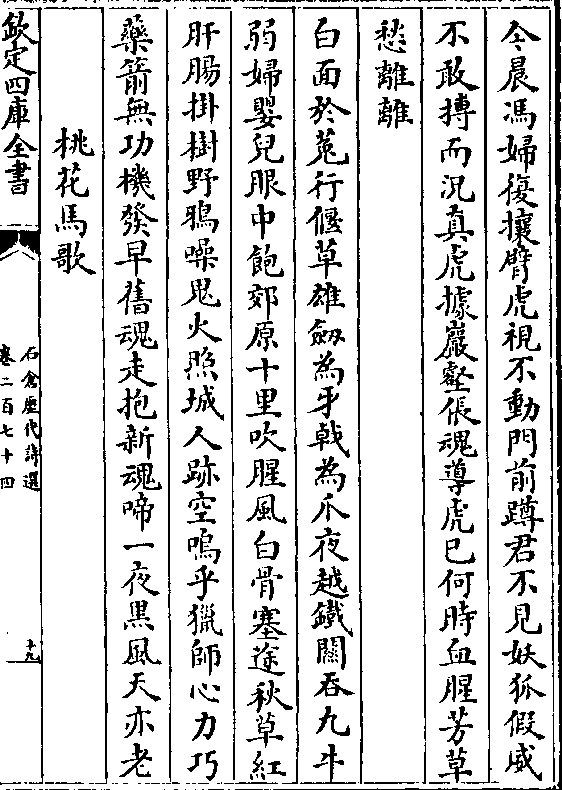 今晨馮婦復攘臂虎視不動門前蹲君不見妖狐假威
不敢搏而况真虎據巖壑倀魂導虎已何時血腥芳草
愁離離
白面於菟行偃草雄劒為牙戟為爪夜越鐵關吞九牛
弱婦嬰兒眼中飽郊原十里吹腥風白骨塞途秋草紅
肝腸掛樹野鴉噪鬼火照城人跡空嗚乎獵師心力巧
藥箭無功機發早舊魂走抱新魂啼一夜黒風天亦老
桃花馬歌
欽定四庫全書
石倉歴代詩選
卷二百七十四
十九